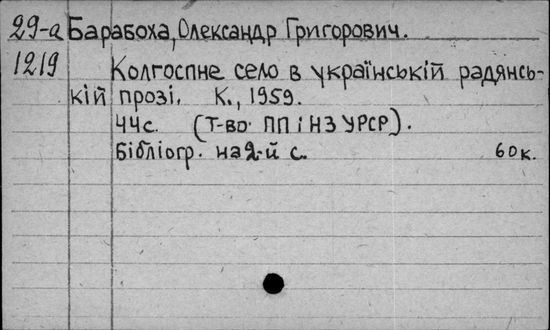 29-а Барабоха, Олександр Григорович.
1219 Колгоспне село в українській радянсь-
кій прозі. К., 1959.
44с. (Т-во ПП і НЗ УРСР).
Бібліогр. на 2-й с. 60к.